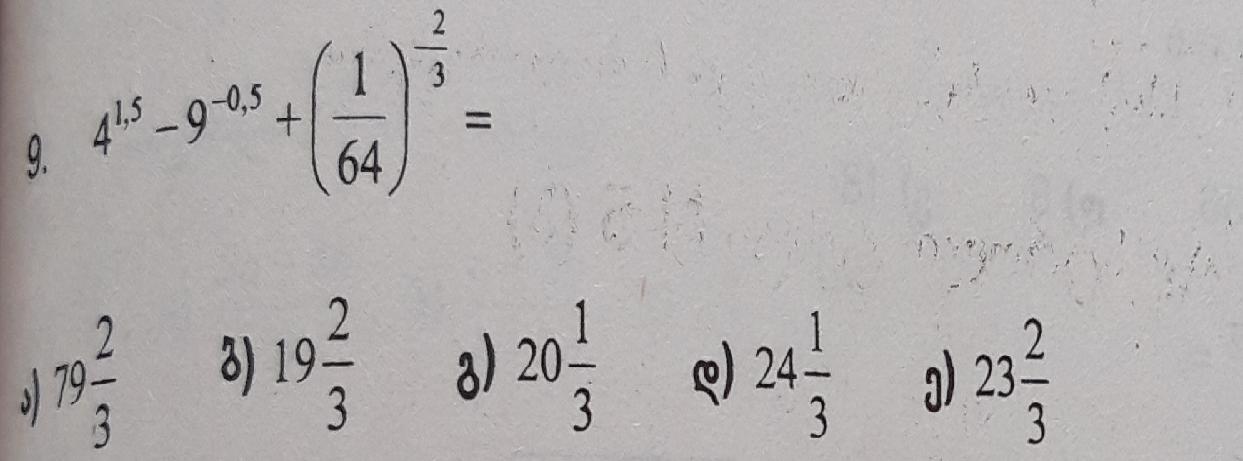 9. 4^{1,5} − 9^{−0,5} + (1/64)^{−2/3} =
ა) 79 2/3 ბ) 19 2/3 გ) 20 1/3 დ) 24 1/3 ე) 23 2/3